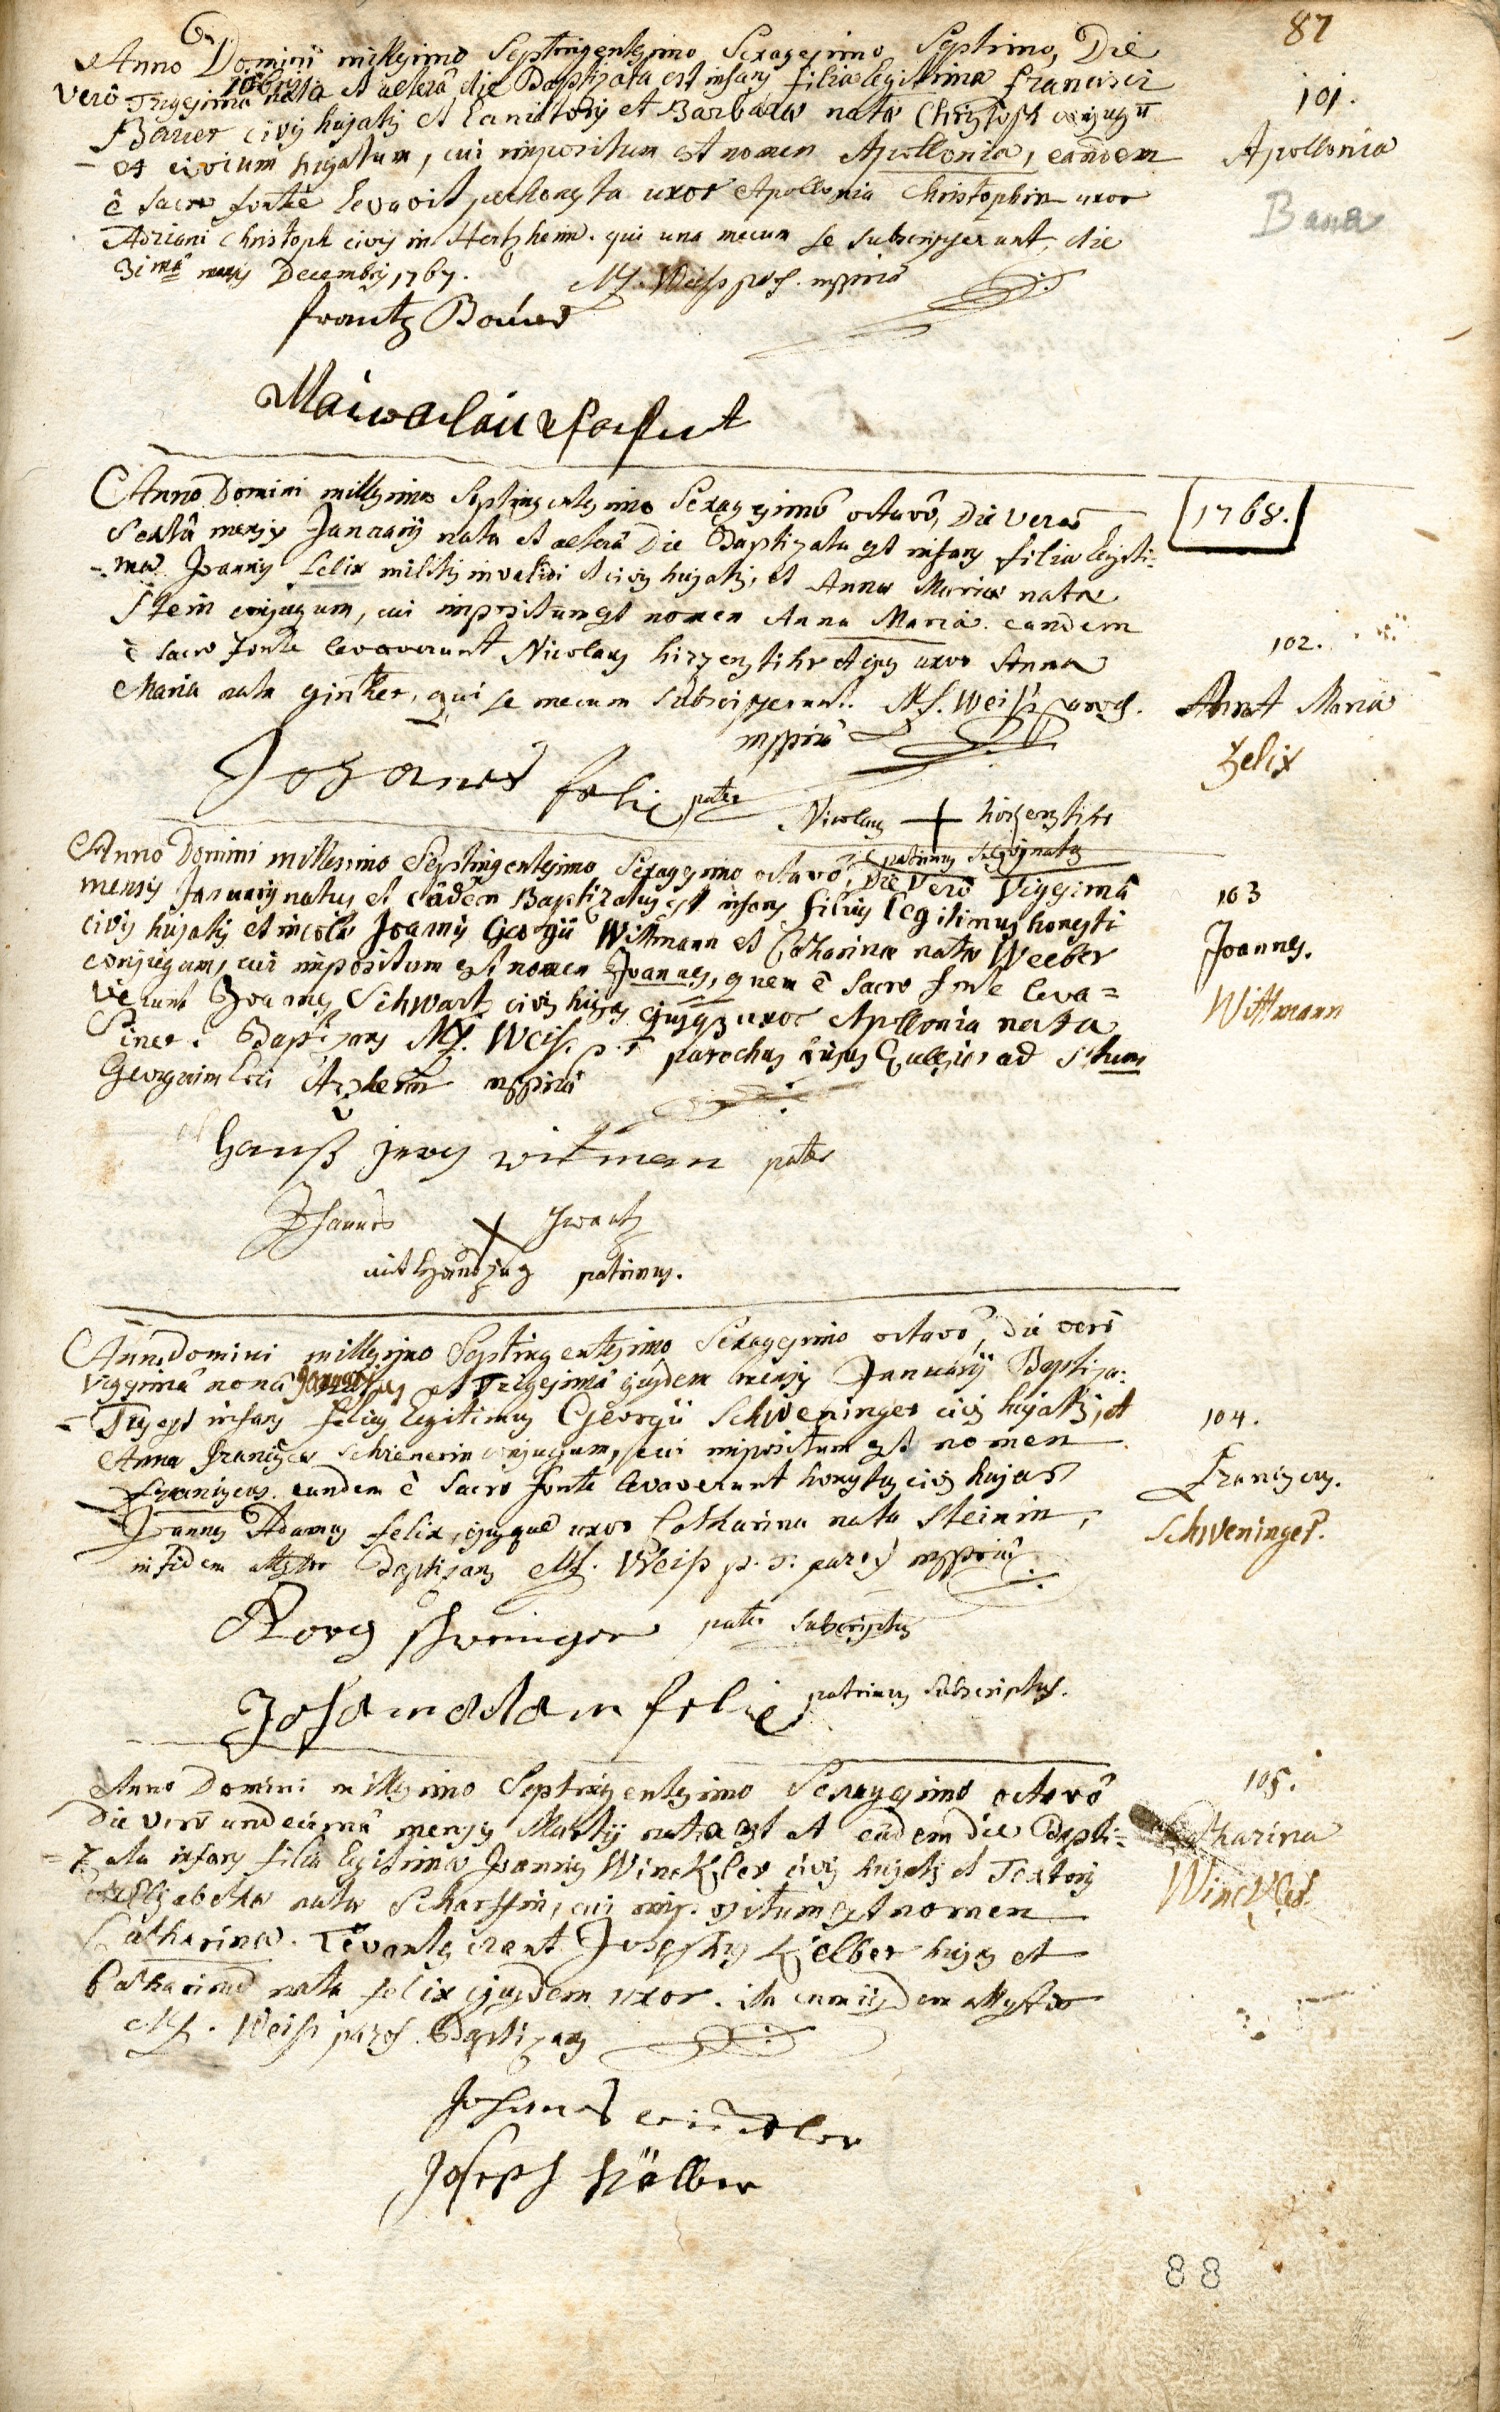 87
Anno Domini millesimo Septingentesimo Sexagesimo Septimo, Die
vero Trigesima nata et altera die Baptizata est infans filia legitima francisci
xbris
Bauer civis hujatis et Laniatoris et Barbara nata Christoph conjugum
et civium hujatum, cui impositum est nomen Apollonia, eandem
101.
Apollonia
Baua
è sacro fonte levavit perhonesta uxor Apollonia Christophin uxor
Adriani Christoph civis in Hertzheim. qui una mecum se subscripserunt, die
31ma mensis Decembris 1767. M. Weiss par. mppria
frantz Bauer
Anno Domini millesimo Septingentesimo Sexagesimo octavo, Die vero
1768.
Sexta mensis Januarij nata et altera Die Baptizata est infans filia legiti-
-ma Joannis felix militis invalidi et civis hujatis, et Anna Maria nata
Stein conjugum, cui impositum est nomen Anna Maria. eandem
è sacro fonte levaverunt Nicolaus hirzenstihr et ejus uxor Anna
Maria nata ginther, qui se mecum subscripserunt. M. Weiss paroch.
mppria
102.
Anna Maria
Felix
Johanes felix pater
Nicolaus + hirzenstihr
patrinus subsignatus
Anno Domini millesimo Septingentesimo Sexagesimo octavo, Die vero Vigesima
mensis Januarij natus et eadem Baptizatus est infans filius legitimus honesti
civis hujatis et incola Joannis Georgii Wittmann et Catharina nata Weeber
conjugum, cui impositum est nomen Joannes, quem è sacro fonte leva=
verunt Joannes Schwartz civis hujas ejusq; uxor Apollonia nata
Piner. Baptizans M. Weiss p.t. parochus hujus Ecclesiae ad Stum
Georgium loci mppria
103
Joannes.
Wittmann
Hanß jerg witman pater
Johannes X Schwartz
mit Handzug patrinus.
Anno Domini millesimo Septingentesimo Sexagesimo octavo, die vero
Vigesima nona natus et Trigesima ejusdem mensis Januarij Baptiza:
-Tus est infans filius legitimus Georgii Schweninger civis hujatis, et
Anna francisca Schrenerin conjugum, cui impositum est nomen
Franciscus. eundem è sacro fonte levaverunt honestus civis hujas
Joannes Adamus felix, ejusque uxor Catharina nata Steinin,
in fidem attestor Baptizans M. Weiss p. t. paroch mppria
104.
Franciscus.
Schweninger.
Jorg schweninger pater subscriptus
Johan adam felix patrinus subscriptus.
Anno Domini millesimo Septingentesimo Sexagesimo octavo
Die vero undecima mensis Martij nata est et eadem die Bapti=
=zata infans filia legitima Joannis Winckler civis hujatis et Textoris
et Elisabetha nata Scharffin, cui impositum est nomen
Catharina. Levantes erant Josephus Kelber hujas et
Catharina nata felix ejusdem uxor. ita cum iisdem attestor
M. Weiss paroch Baptizans
105.
Catharina
Winckler.
Johanes winckler
Joseph Kälber
88